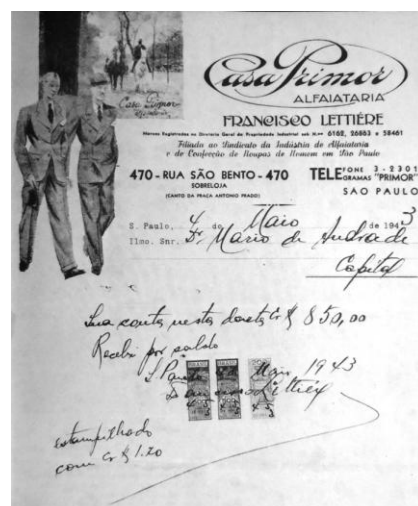 Casa Primor
ALFAIATARIA
Casa Primor
FRANCISCO LETTIÉRE
Marcas Registradas na Diretoria Geral da Propriedade Industrial sob N.os 6162, 26883 e 58461
Filiado ao Sindicato da Indústria de Alfaiataria
e de Confecção de Roupas de Homem em São Paulo
470 - RUA SÃO BENTO - 470
SOBRELOJA
(CANTO DA PRAÇA ANTONIO PRADO)
TELEFONE 3-2301
TELEGRAMAS "PRIMOR"
SAO PAULO
S. Paulo, 4 de Maio de 1943
Ilmo. Snr. Dr. Mario de Andrade
Capital
Sua conta nesta data Cr $ 850,00
Recebi por saldo
S. Paulo Maio 1943
Francisco Lettiére
estampilhado
com Cr $ 1.20